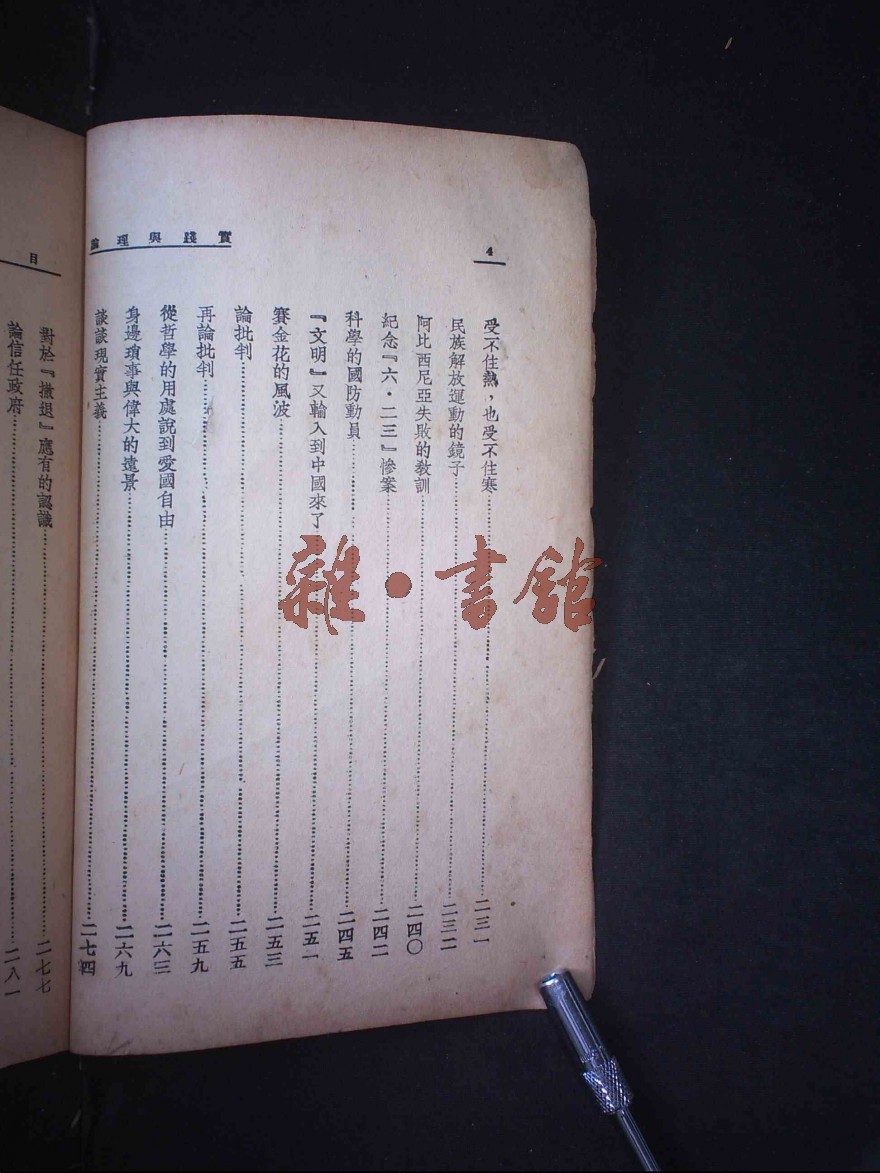 實踐與理論
4
受不住熱，也受不住寒……二三一
民族解放運動的鏡子……二三二
阿比西尼亞失敗的教訓……二四〇
紀念『六・二三』慘案……二四二
科學的國防動員……二四五
『文明』又輪入到中國來了……二五一
賽金花的風波……二五三
論批判……二五五
再論批判……二五九
從哲學的用處說到愛國自由……二六三
身邊瑣事與偉大的遠景……二六九
談談現實主義……二七四
目
對於『撤退』應有的認識……二七七
論信任政府……二八一
雜・書館